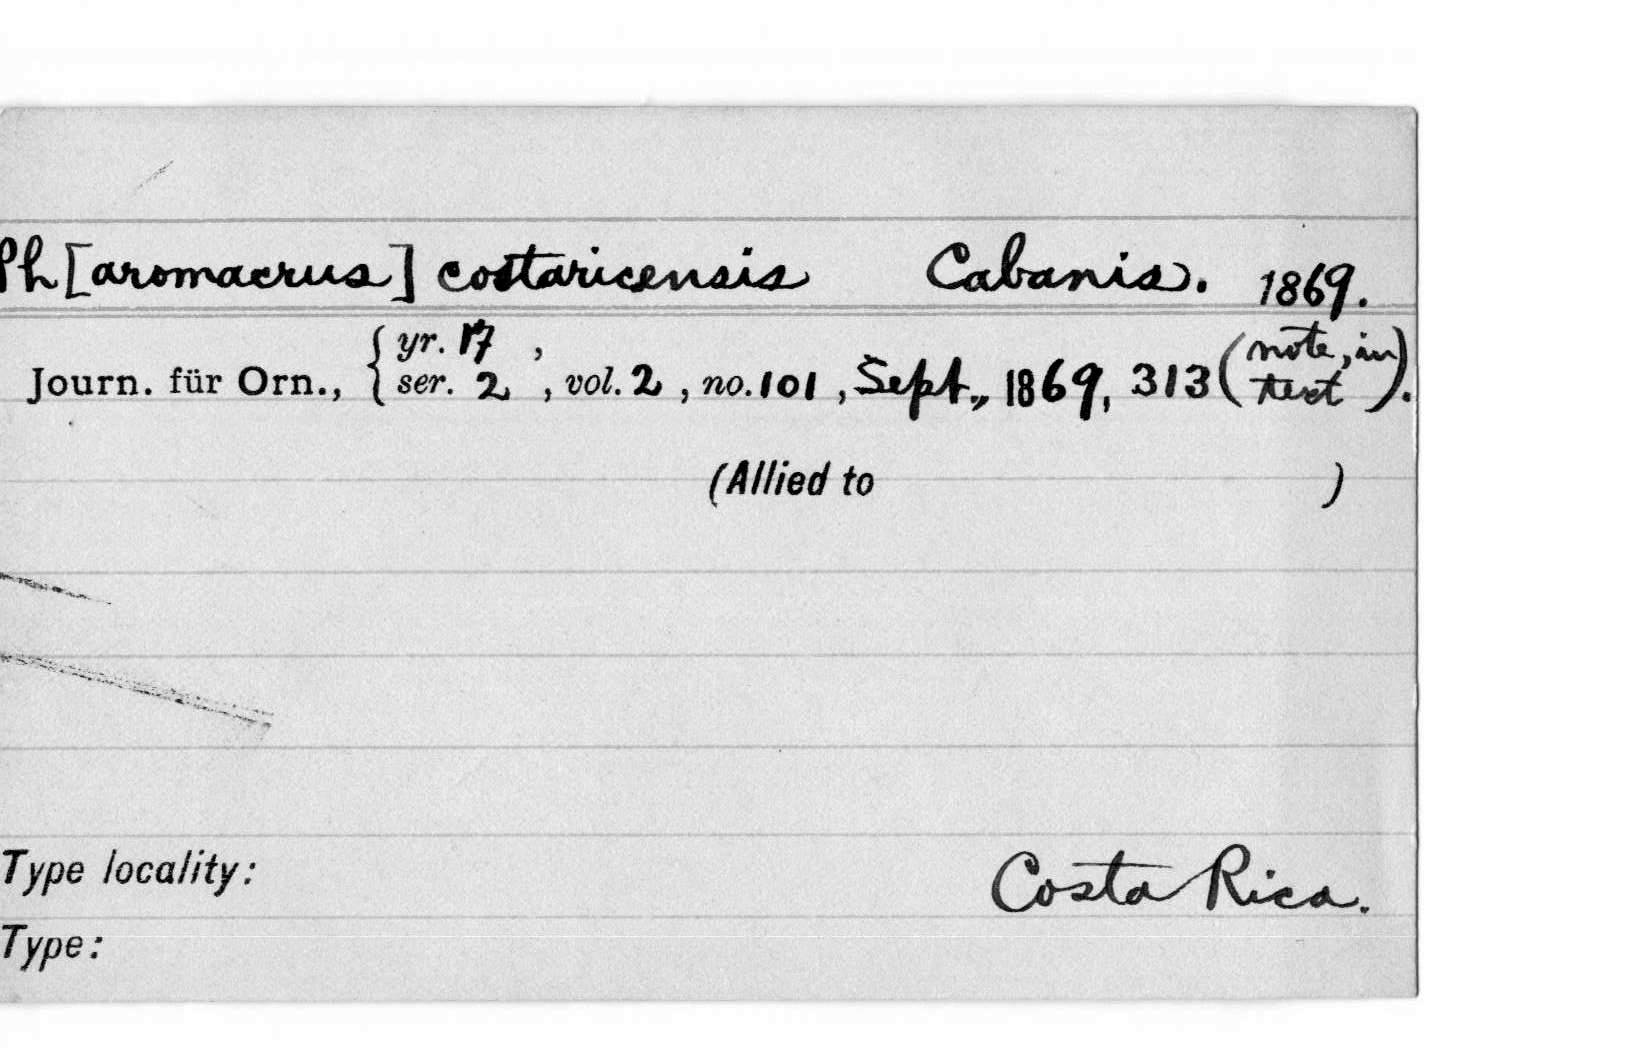 Ph[aromacrus] costaricensis Cabanis. 1869.
Journ. für Orn., { yr. 17 ,
ser. 2 , vol. 2 , no. 101 , Sept., 1869, 313 (note, in text).
(Allied to )
Type locality: Costa Rica.
Type: